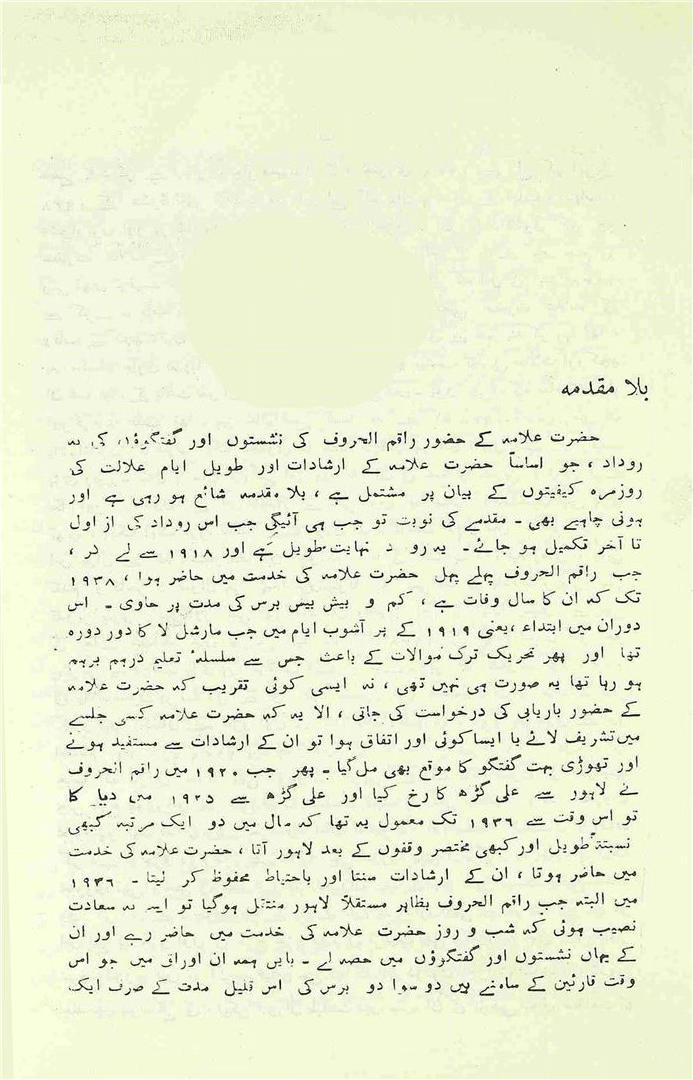 بلا مقدمه
حضرت علامہ کے حضور راقم الحروف کی نشستوں اور گفتگوؤں کی یہ
روداد ، جو اساساً حضرت علامہ کے ارشادات اور طویل ایام علالت کی
روزمرہ کیفیتوں کے بیان پر مشتمل ہے ، بلا مقدمہ شائع ہو رہی ہے اور
ہونی چاہیے بھی ۔ مقدمے کی نوبت تو جب ہی آئیگی جب اس روداد کی از اول
تا آخر تکمیل ہو جائے ۔ یہ رو د نہایت طویل ہے اور ۱۹۱۸ سے لے کر ،
جب راقم الحروف پہلے پہل حضرت علامہ کی خدمت میں حاضر ہوا ، ۱۹۳۸
تک کہ ان کا سال وفات ہے ، کم و بیش بیس برس کی مدت پر حاوی ۔ اس
دوران میں ابتداء ،یعنی ۱۹۱۹ کے پر آشوب ایام میں جب مارشل لا کا دور دورہ
تھا اور پھر تحریک ترک موالات کے باعث جس سے سلسلۂ تعلیم درہم برہم
ہو رہا تھا یہ صورت ہی نہیں تھی ، نہ ایسی کوئی تقریب کہ حضرت علامہ
کے حضور باریابی کی درخواست کی جاتی ، الا یہ کہ حضرت علامہ کسی جلسے
میں تشریف لائے یا ایسا کوئی اور اتفاق ہوا تو ان کے ارشادات سے مستفید ہونے
اور تھوڑی بہت گفتگو کا موقع بھی مل گیا ۔ پھر جب ۱۹۲۰ میں راقم الحروف
نے لاہور سے علی گڑھ کا رخ کیا اور علی گڑھ سے ۱۹۲۵ میں دہلی کا
تو اس وقت سے ۱۹۳۶ تک معمول یہ تھا کہ سال میں دو ایک مرتبہ کبھی
نسبتہً طویل اور کبھی مختصر وقفوں کے بعد لاہور آتا ، حضرت علامہ کی خدمت
میں حاضر ہوتا ، ان کے ارشادات سنتا اور باحتیاط محفوظ کر لیتا ۔ ۱۹۳۶
میں البتہ جب راقم الحروف بظاہر مستقلاً لاہور منتقل ہوگیا تو اسے یہ سعادت
نصیب ہوئی کہ شب و روز حضرت علامہ کی خدمت میں حاضر رہے اور ان
کے یہاں نشستوں اور گفتگوؤں میں حصہ لے ۔ بایں ہمہ ان اوراق میں جو اس
وقت قارئین کے سامنے ہیں دو سوا دو برس کی اس قلیل مدت کے صرف ایک